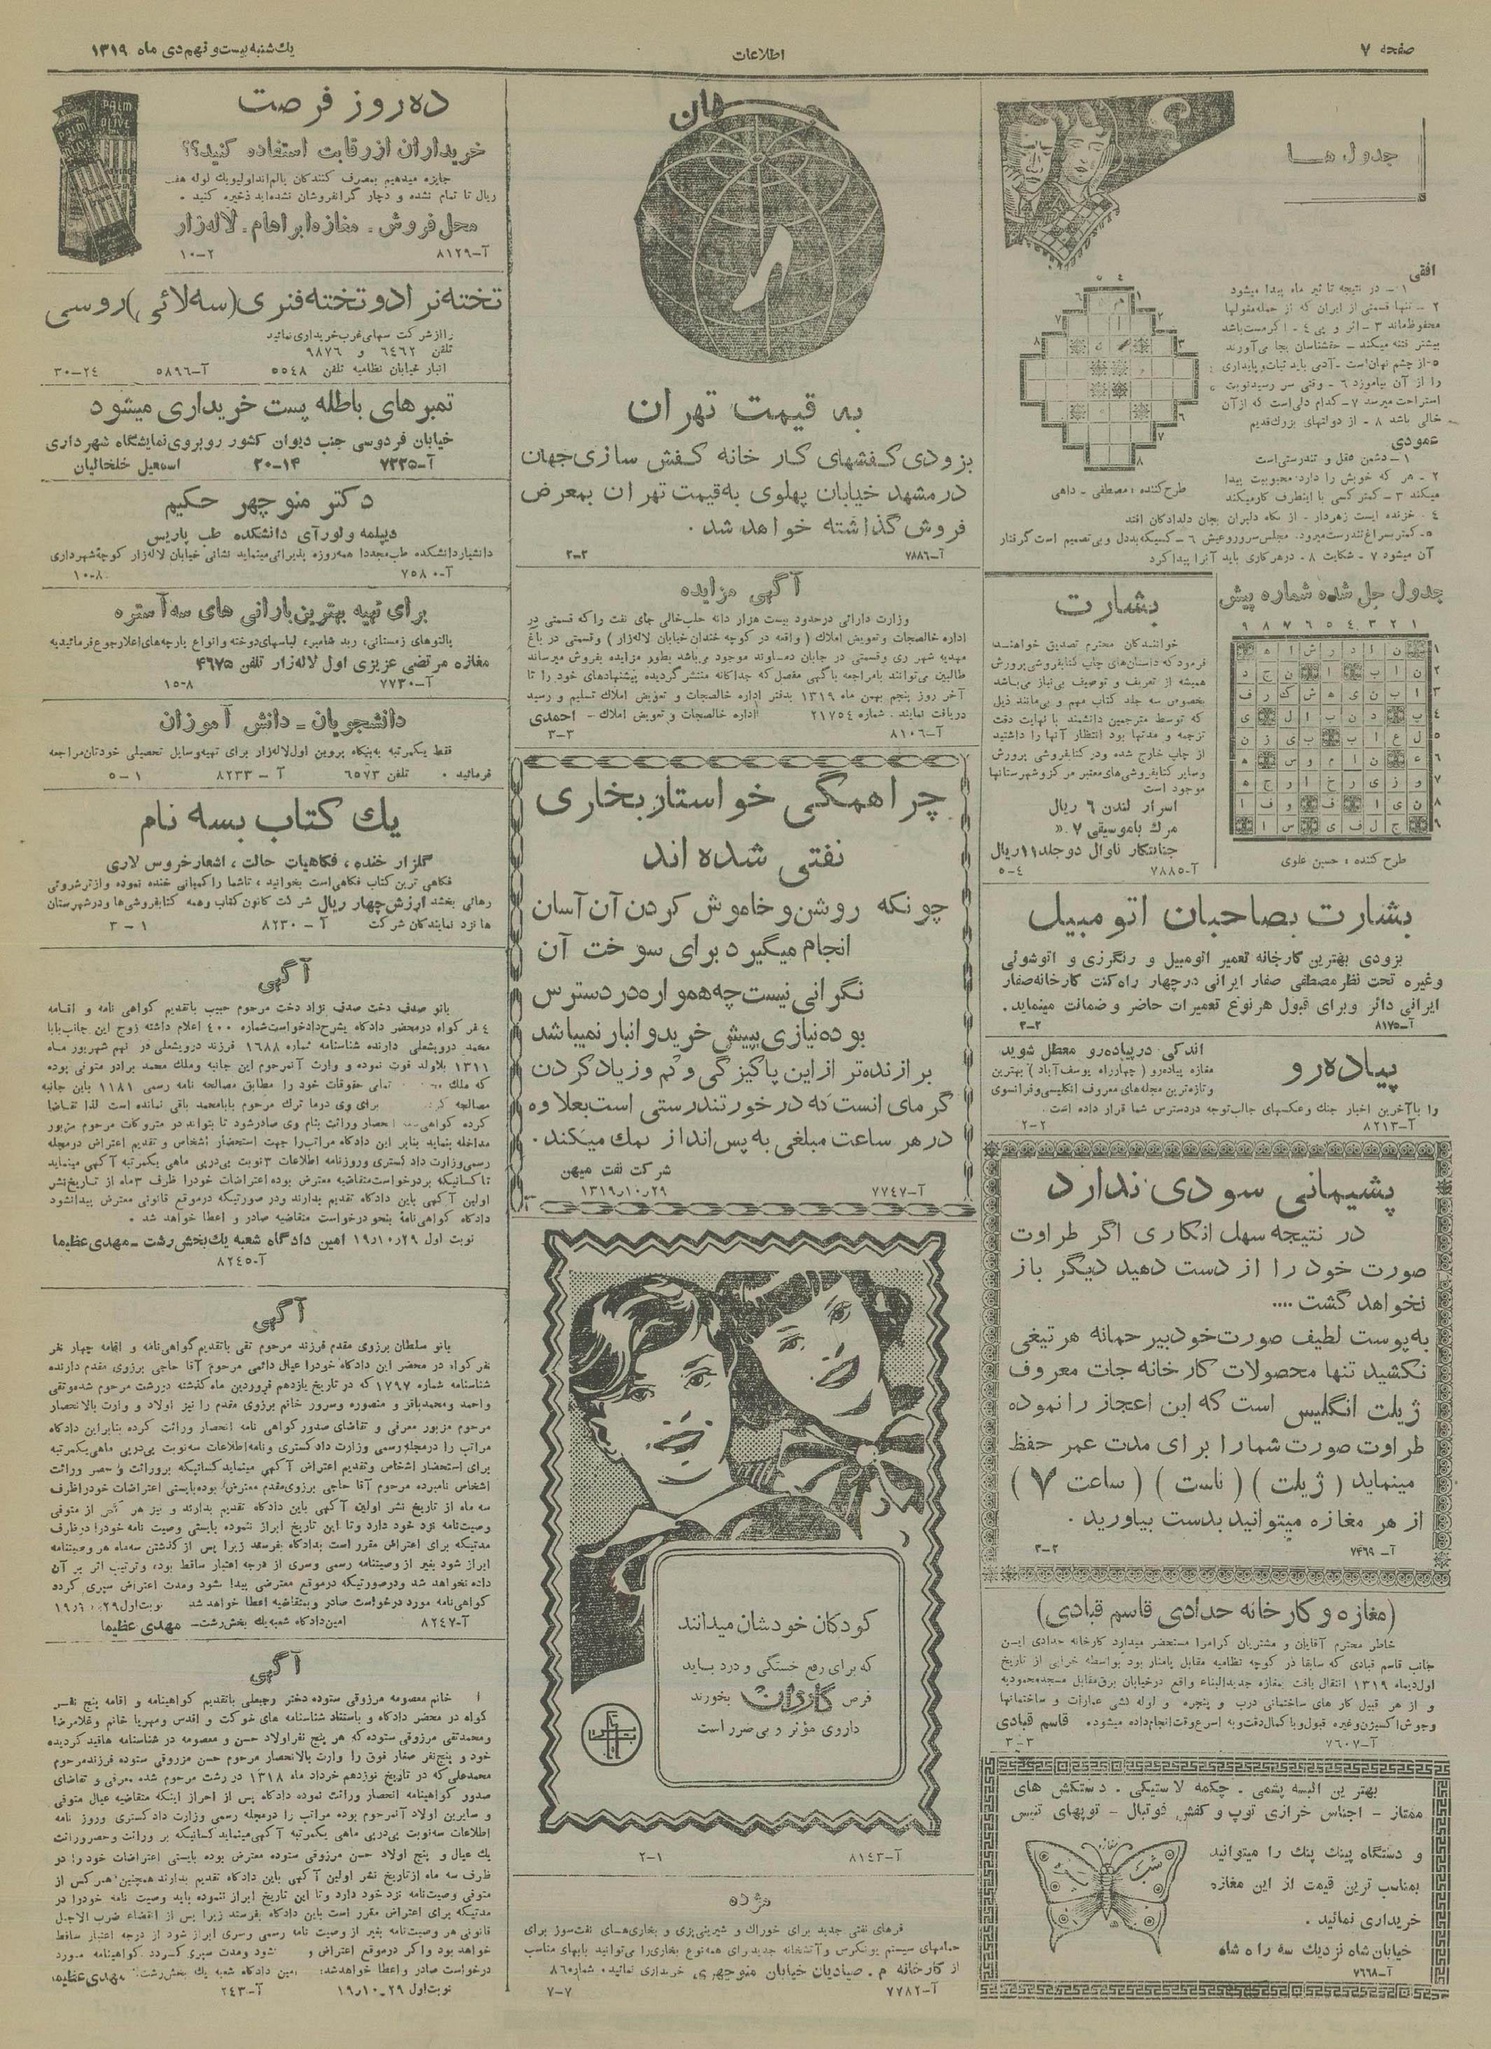 صفحه ۷
اطلاعات
یکشنبه بیست و نهم دی ماه ۱۳۱۹
جدول ها
افقی
۱ - در نتیجه تاثیر ماه پیدا میشود
۲ - تنها قسمتی از ایران که از حمله مغولها
محفوظ ماند ۳ - اثر و پی ٤ - اگر مست باشد
بیشتر فتنه میکند - حقشناسان بجا می‌آورند
٥ - از چشم نهان است - آدمی باید ثبات و پایداری
را از آن بیاموزد ٦ - وقتی سر رسید نوبت
استراحت میرسد ۷ - کدام دلی است که از آن
خالی باشد ۸ - از دولتهای بزرگ قدیم
عمودی
۱ - دشمن عقل و تندرستی است
۲ - هر که خویش را دارد محبوبیت پیدا
میکند ۳ - کمتر کسی با اینطرف کار میکند
٤ . خزنده ایست زهردار - از نگاه دلبران بجان دلدادگان افتد
٥ - کمتر بسراغ تندرست میرود. مجلس سرور و عیش ٦ - کسیکه بددل و بی تصمیم است گرفتار
آن میشود ۷ - شکایت ۸ - در هر کاری باید آنرا پیدا کرد
طرح کننده : مصطفی - داهی
جدول حل شده شماره پیش
۱ ۲ ۳ ٤ ٥ ٦ ۷ ۸ ۹
طرح کننده : حسین علوی
بشارت
خوانندگان محترم تصدیق خواهند
فرمود که داستان‌های چاپ کتابفروشی پرورش
همیشه از تعریف و توصیف بی‌نیاز می‌باشد
بخصوص سه جلد کتاب مهم و بی‌مانند ذیل
که توسط مترجمین دانشمند با نهایت دقت
ترجمه و مدتها بود انتظار آنها را داشتید
از چاپ خارج شده و در کتابفروشی پرورش
و سایر کتابفروشی‌های معتبر مرکز و شهرستانها
موجود است
اسرار لندن ٦ ریال
مرگ با موسیقی ۷ »
جنایتکار ناوال دو جلد ۱۱ ریال
آ-۷۸۸٥ ٤-٥
بشارت بصاحبان اتومبیل
بزودی بهترین کارخانه تعمیر اتومبیل و رنگرزی و اتوشوئی
و غیره تحت نظر مصطفی صفار ایرانی در چهار راه کنت کارخانه صفار
ایرانی دائر و برای قبول هر نوع تعمیرات حاضر و ضمانت مینماید.
آ-۸۱۷٥ ۲-۳
پیاده‌رو
اندکی در پیاده‌رو معطل شوید
مغازه پیاده‌رو (چهارراه یوسف‌آباد) بهترین
و تازه‌ترین مجله‌های معروف انگلیسی و فرانسوی
را با آخرین اخبار جنگ و عکسهای جالب توجه در دسترس شما قرار داده است .
آ-۸۲۱۳ ۲-۲
پشیمانی سودی ندارد
در نتیجه سهل انکاری اگر طراوت
صورت خود را از دست دهید دیگر باز
نخواهد گشت ....
به پوست لطیف صورت خود بیرحمانه هر تیغی
نکشید تنها محصولات کارخانه جات معروف
ژیلت انگلیس است که این اعجاز را نموده
طراوت صورت شما را برای مدت عمر حفظ
مینماید ( ژیلت ) ( ناست ) ( ساعت ۷ )
از هر مغازه میتوانید بدست بیاورید .
آ- ۷۴۶۹ ۲-۳
(مغازه و کارخانه حدادی قاسم قبادی)
خاطر محترم آقایان و مشتریان گرامرا مستحضر میدارد کارخانه حدادی این
جانب قاسم قبادی که سابقا در کوچه نظامیه مقابل پامنار بود بواسطه خرابی از تاریخ
اول دیماه ۱۳۱۹ انتقال یافت بمغازه جدیدالبناء واقع در خیابان برق مقابل مسجد محمودیه
و از هر قبیل کار های ساختمانی درب و پنجره و لوله کشی عمارات و ساختمانها
و جوش اکسیژن و غیره قبول و با کمال دقت و به اسرع وقت انجام داده میشود. قاسم قبادی
آ-۷٦۰۷ ۳-۳
بهترین البسه پشمی . چکمه لاستیکی . دستکش های
ممتاز - اجناس خرازی توپ و کفش فوتبال - توپهای تنیس
و دستگاه پینگ پنگ را میتوانید
بمناسب ترین قیمت از این مغازه
خریداری نمائید .
خیابان شاه نزدیک سه راه شاه
آ-۷۶۶۸
جهان
به قیمت تهران
بزودی کفشهای کار خانه کفش سازی جهان
در مشهد خیابان پهلوی به قیمت تهران بمعرض
فروش گذاشته خواهد شد .
آ-۷۸۸٦ ۲-۲
آگهی مزایده
وزارت دارائی در حدود بیست هزار دانه حلب خالی جای نفت را که قسمتی در
اداره خالصجات و تعویض املاک ( واقعه در کوچه خندان خیابان لاله‌زار ) و قسمتی در باغ
مهدیه شهر ری و قسمتی در جابان دماوند موجود می‌باشد بطور مزایده بفروش میرساند
طالبین می‌توانند بامراجعه باگهی مفصل که جداگانه منتشر گردیده پیشنهادهای خود را تا
آخر روز پنجم بهمن ماه ۱۳۱۹ بدفتر اداره خالصجات و تعویض املاک تسلیم و رسید
دریافت نمایند . شماره ۲۱۷٥٤ اداره خالصجات و تعویض املاک - احمدی
آ-۸۱۰٦ ۳-۳
چرا همگی خواستار بخاری
نفتی شده اند
چونکه روشن و خاموش کردن آن آسان
انجام میگیرد برای سوخت آن
نگرانی نیست چه همواره در دسترس
بوده نیازی بپیش خرید و انبار نمیباشد
برازنده‌تر از این پاکیزگی و کم و زیاد کردن
گرمای آنست که در خور تندرستی است بعلاوه
در هر ساعت مبلغی به پس‌انداز کمک میکند .
شرکت نفت میهن
آ-۷۷٤۷ ۱۳۱۹ر۱۰ر۲۹
کودکان خودشان میدانند
که برای رفع خستگی و درد باید
قرص کاردان بخورند
داروی مؤثر و بی ضرر است
آ-۸۱٤۳ ۱-۲
مژده
فرهای نفتی جدید برای خوراک و شیرینی‌پزی و بخاری‌های نفت‌سوز برای
حمامهای سیستم یونکرس و آتشخانه جدید برای همه نوع بخاری را می‌توانید ببهای مناسب
از کارخانه م . صیادیان خیابان منوچهری خریداری نمائید. شماره ۸٦۰
آ-۷۷۸۲ ۷-۷
ده روز فرصت
خریداران از رقابت استفاده کنید؟؟
جایزه میدهیم بمصرف کنندگان پالم‌اند اولیو یک لوله هفت
ریال تا تمام نشده و دچار گرانفروشان نشده‌اید ذخیره کنید .
محل فروش . مغازه ابراهام . لاله‌زار
آ-۸۱۲۹ ۲-۱۰
تخته نراد و تخته فنری (سه لائی) روسی
را از شرکت سهامی غرب خریداری نمائید
تلفن ٦٤٦۲ و ۹۸۷٦
انبار خیابان نظامیه تلفن ٥٥٤۸ آ-٥۸۹٦ ۲٤-۳۰
تمبرهای باطله پست خریداری میشود
خیابان فردوسی جنب دیوان کشور روبروی نمایشگاه شهرداری
آ-۷۲۲۵ ۱۴-۲۰ اسمعیل خلخالیان
دکتر منوچهر حکیم
دیپلمه و لورآی دانشکده طب پاریس
دانشیار دانشکده طب مجددا همه روزه پذیرائی مینماید نشانی خیابان لاله‌زار کوچه شهرداری
آ-۷٥۸۰ ۸-۱۰
برای تهیه بهترین بارانی های سه آستره
پالتوهای زمستانی، ربدشامبر، لباسهای دوخته و انواع پارچه‌های اعلا رجوع فرمائید به
مغازه مرتضی عزیزی اول لاله‌زار تلفن ۴۶۷۵
آ-۷۷۳۰ ۸-۱٥
دانشجویان - دانش آموزان
فقط یکمرتبه به بنگاه پروین اول لاله‌زار برای تهیه وسایل تحصیلی خودتان مراجعه
فرمائید . تلفن ٦٥۷۳ آ - ۸۲۳۳ ۱-٥
یک کتاب بسه نام
گلزار خنده ، فکاهیات حالت ، اشعار خروس لاری
فکاهی ترین کتاب فکاهی است بخوانید ، تا شما را کمپانی خنده نموده و از ترشروئی
رهائی بخشد ارزش چهار ریال شرکت کانون کتاب و همه کتابفروشی‌ها و در شهرستان
ها نزد نمایندگان شرکت آ - ۸۲۳۰ ۱-۳
آگهی
بانو صدف دخت صدف نژاد دخت مرحوم حبیب باتقدیم گواهی نامه و اقامه
٤ نفر گواه در محضر دادگاه بشرح دادخواست شماره ٤۰۰ اعلام داشته زوج این جانب بابا
محمد درویشعلی دارنده شناسنامه شماره ۱٦۸۸ فرزند درویشعلی در نهم شهریور ماه
۱۳۱۱ بلاولد فوت نموده و وارث آنمرحوم این جانبه و ملک محمد برادر متوفی بوده
که ملک تمامی حقوقات خود را مطابق مصالحه نامه رسمی ۱۱۸۱ باین جانبه
مصالحه برای وی در ما ترک مرحوم بابامحمد باقی نمانده است لذا تقاضا
کرده گواهی انحصار وراثت بنام وی صادر شود تا بتواند در متروکات مرحوم مزبور
مداخله بنماید بنابر این دادگاه مراتب را جهت استحضار اشخاص و تقدیم اعتراض در مجله
رسمی وزارت دادگستری و روزنامه اطلاعات ۳ نوبت پی‌درپی ماهی یکمرتبه آگهی مینماید
تا کسانیکه بر درخواست متقاضیه معترض بوده اعتراضات خود را ظرف ۳ ماه از تاریخ نشر
اولین آگهی باین دادگاه تقدیم بدارند و در صورتیکه در موقع قانونی معترض پیدا نشود
دادگاه گواهی‌نامه بنحو درخواست متقاضیه صادر و اعطا خواهد شد .
نوبت اول ۲۹ر۱۰ر۱۹ امین دادگاه شعبه یک بخش رشت - مهدی عظیما
آ-۸۲٤٥
آگهی
بانو سلطان برزوی مقدم فرزند مرحوم تقی باتقدیم گواهی‌نامه و اقامه چهار نفر
نفر گواه در محضر این دادگاه خود را عیال دائمی مرحوم آقا حاجی برزوی مقدم دارنده
شناسنامه شماره ۱۷۹۷ که در تاریخ یازدهم فروردین ماه گذشته در رشت مرحوم شده و تقی
و احمد و محمدباقر و منصوره و سرور خانم برزوی مقدم را نیز اولاد و وارث بالانحصار
مرحوم مزبور معرفی و تقاضای صدور گواهی نامه انحصار وراثت کرده بنابراین دادگاه
مراتب را در مجله رسمی وزارت دادگستری و نامه اطلاعات سه نوبت پی‌درپی ماهی یکمرتبه
برای استحضار اشخاص و تقدیم اعتراض آگهی مینماید کسانیکه بر وراثت و حصر وراثت
اشخاص نامبرده مرحوم آقا حاجی برزوی مقدم معترض بوده بایستی اعتراضات خود را ظرف
سه ماه از تاریخ نشر اولین آگهی باین دادگاه تقدیم بدارند و نیز هر کس از متوفی
وصیت‌نامه نزد خود دارد و تا این تاریخ ابراز ننموده بایستی وصیت نامه خود را در ظرف
مدتیکه برای اعتراض مقرر است بدادگاه بفرستد زیرا پس از گذشتن سه ماه هر وصیتنامه
ابراز شود بغیر از وصیتنامه رسمی و سری از درجه اعتبار ساقط بوده و ترتیب اثر بر آن
داده نخواهد شد و در صورتیکه در موقع معترضی پیدا نشود و مدت اعتراض سپری گردد
گواهی‌نامه مورد درخواست صادر و بمتقاضیه اعطا خواهد شد نوبت اول
آ-۸۲٤۷ امین دادگاه شعبه یک بخش رشت - مهدی عظیما
آگهی
خانم معصومه مرزوقی ستوده دختر رجبعلی باتقدیم گواهینامه و اقامه پنج نفر
گواه در محضر دادگاه و باستناد شناسنامه های شوکت و اقدس و مهریا خانم و غلامرضا
و محمدتقی مرزوقی ستوده که هر پنج نفر اولاد حسن و معصومه در شناسنامه ها قید گردیده
خود و پنج نفر صغار فوق را وارث بالانحصار مرحوم حسن مرزوقی ستوده فرزند مرحوم
محمدعلی که در تاریخ نوزدهم خرداد ماه ۱۳۱۸ در رشت مرحوم شده معرفی و تقاضای
صدور گواهینامه انحصار وراثت نموده دادگاه پس از احراز اینکه متقاضیه عیال متوفی
و سایرین اولاد آنمرحوم بوده مراتب را در مجله رسمی وزارت دادگستری و روز نامه
اطلاعات سه نوبت پی‌درپی ماهی یکمرتبه آگهی مینماید کسانیکه بر وراثت و حصر وراثت
یک عیال و پنج اولاد حسن مرزوقی ستوده معترض بوده بایستی اعتراضات خود را در
ظرف سه ماه از تاریخ نشر اولین آگهی باین دادگاه تقدیم بدارند همچنین هر کس از
متوفی وصیت‌نامه نزد خود دارد و تا این تاریخ ابراز ننموده باید وصیت نامه خود را در
مدتیکه برای اعتراض مقرر است باین دادگاه بفرستد زیرا پس از انقضاء ضرب الاجل
قانونی هر وصیت‌نامه بغیر از وصیت نامه رسمی و سری ابراز شود از درجه اعتبار ساقط
خواهد بود و اگر در موقع اعتراض و شود و مدت سپری گردد گواهینامه مورد
درخواست صادر و اعطا خواهد شد. امین دادگاه شعبه یک بخش رشت: مهدی عظیما
نوبت اول ۲۹ر۱۰ر۱۹ آ-۲٤۳